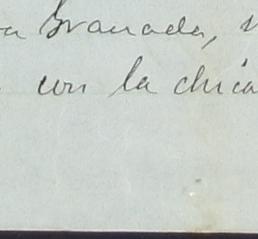 Granada,
con la chica